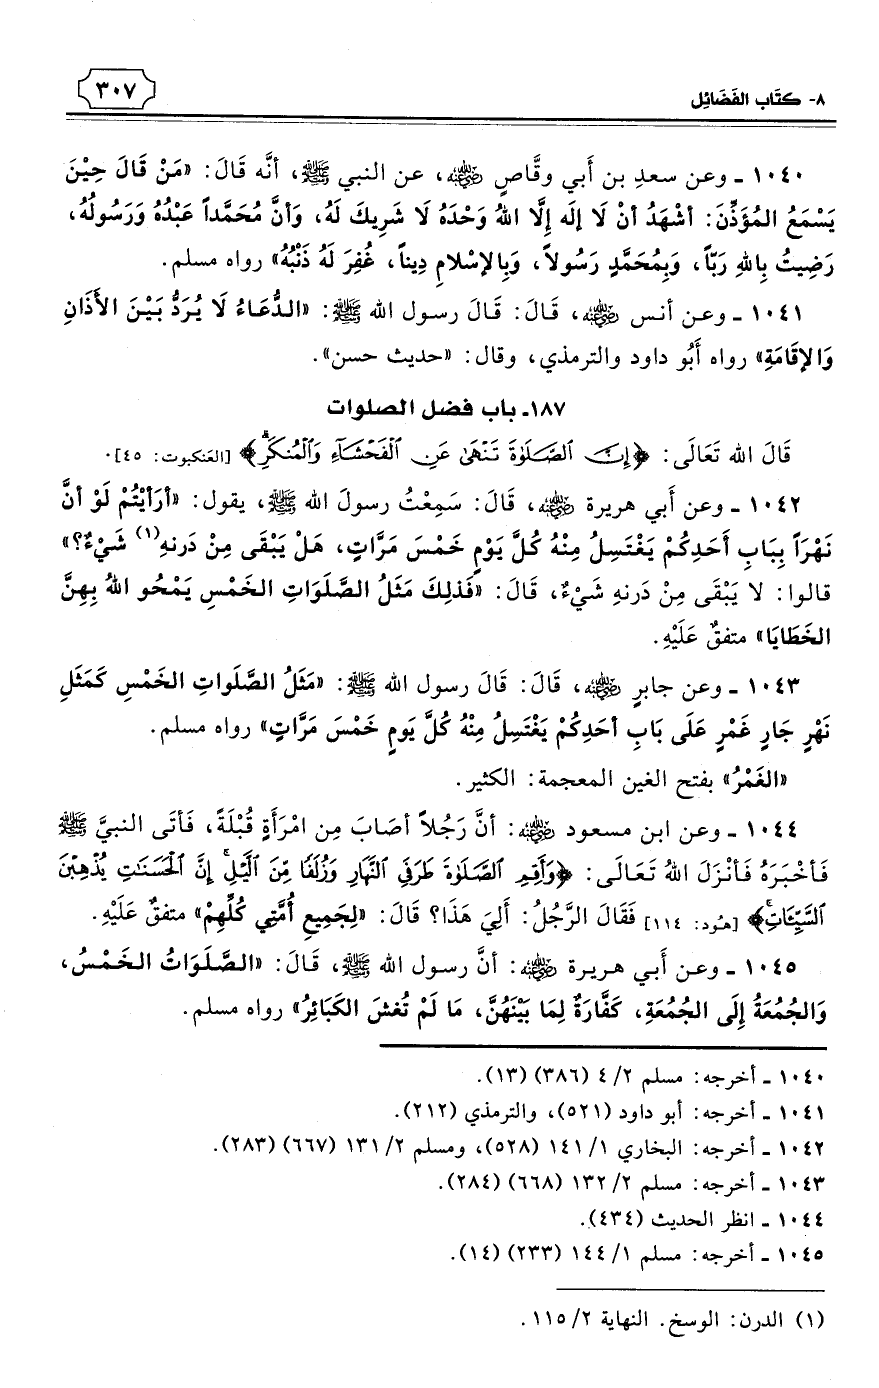 ٨- كتَاب الفَضَائِل
٣٠٧
١٠٤٠ ـ وعن سعدِ بن أَبي وقَّاصٍ ﵁، عن النبي ﷺ، أنَّه قَالَ: «مَنْ قَالَ حِيْنَ
يَسْمَعُ المُؤَذِّنَ: أشْهَدُ أنْ لَا إلَه إلَّا اللهُ وَحْدَهُ لَا شَرِيكَ لَهُ، وَأنَّ مُحَمَّداً عَبْدُهُ وَرَسُولُهُ،
رَضِيتُ بِاللهِ رَبّاً، وَبِمُحَمَّدٍ رَسُولاً، وَبِالإسْلامِ دِيناً، غُفِرَ لَهُ ذَنْبُهُ» رواه مسلم.
١٠٤١ ـ وعن أنس ﵁، قَالَ: قَالَ رسول الله ﷺ: «الدُّعَاءُ لَا يُرَدُّ بَيْنَ الأَذَانِ
وَالإقَامَةِ» رواه أَبُو داود والترمذي، وقال: «حديث حسن».
١٨٧ـ باب فضل الصلوات
قَالَ الله تَعَالَى: ﴿إِنَّ ٱلصَّلَوٰةَ تَنْهَىٰ عَنِ ٱلْفَحْشَآءِ وَٱلْمُنكَرِۗ﴾ [العَنكبوت: ٤٥].
١٠٤٢ ـ وعن أَبي هريرة ﵁، قَالَ: سَمِعْتُ رسولَ الله ﷺ، يقول: «أرَأيْتُمْ لَوْ أنَّ
نَهْرَاً بِبَابِ أَحَدِكُمْ يَغْتَسِلُ مِنْهُ كُلَّ يَوْمٍ خَمْسَ مَرَّاتٍ، هَلْ يَبْقَى مِنْ دَرنهِ(١) شَيْءٌ؟»
قالوا: لا يَبْقَى مِنْ دَرنهِ شَيْءٌ، قَالَ: «فَذلِكَ مَثَلُ الصَّلَوَاتِ الخَمْسِ يَمْحُو اللهُ بِهِنَّ
الخَطَايَا» متفقٌ عَلَيْهِ.
١٠٤٣ ـ وعن جابرٍ ﵁، قَالَ: قَالَ رسول الله ﷺ: «مَثَلُ الصَّلَواتِ الخَمْسِ كَمَثَلِ
نَهْرٍ جَارٍ غَمْرٍ عَلَى بَابِ أحَدِكُمْ يَغْتَسِلُ مِنْهُ كُلَّ يَومٍ خَمْسَ مَرَّاتٍ» رواه مسلم.
«الغَمْرُ» بفتح الغين المعجمة: الكثير.
١٠٤٤ ـ وعن ابن مسعود ﵁: أنَّ رَجُلاً أصَابَ مِن امْرَأَةٍ قُبْلَةً، فَأتَى النبيَّ ﷺ
فَأخْبَرَهُ فَأنْزَلَ اللهُ تَعَالَى: ﴿وَأَقِمِ ٱلصَّلَوٰةَ طَرَفَيِ ٱلنَّهَارِ وَزُلَفًا مِّنَ ٱلَّيْلِۚ إِنَّ ٱلْحَسَنَـٰتِ يُذْهِبْنَ
ٱلسَّيِّـَٔاتِۚ﴾ [هُود: ١١٤] فَقَالَ الرَّجُلُ: أَلِيَ هَذَا؟ قَالَ: «لِجَمِيعِ أُمَّتِي كُلِّهِمْ» متفقٌ عَلَيْهِ.
١٠٤٥ ـ وعن أَبي هريرة ﵁: أنَّ رسول الله ﷺ، قَالَ: «الصَّلَوَاتُ الخَمْسُ،
وَالجُمُعَةُ إِلَى الجُمُعَةِ، كَفَّارَةٌ لِمَا بَيْنَهُنَّ، مَا لَمْ تُغشَ الكَبَائِرُ» رواه مسلم.
١٠٤٠ ـ أخرجه: مسلم ٢/ ٤ (٣٨٦) (١٣).
١٠٤١ ـ أخرجه: أبو داود (٥٢١)، والترمذي (٢١٢).
١٠٤٢ ـ أخرجه: البخاري ١/ ١٤١ (٥٢٨)، ومسلم ٢/ ١٣١ (٦٦٧) (٢٨٣).
١٠٤٣ ـ أخرجه: مسلم ٢/ ١٣٢ (٦٦٨) (٢٨٤).
١٠٤٤ ـ انظر الحديث (٤٣٤).
١٠٤٥ ـ أخرجه: مسلم ١/ ١٤٤ (٢٣٣) (١٤).
(١) الدرن: الوسخ. النهاية ٢/ ١١٥.